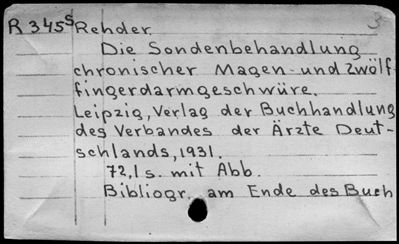 R 345s Rehder. 3
Die Sondenbehandlung
chronischer Magen- und Zwölf-
fingerdarmgeschwüre.
Leipzig, Verlag der Buchhandlung
des Verbandes der Ärzte Deut-
schlands, 1931.
72,1 s. mit Abb.
Bibliogr. am Ende des Buch